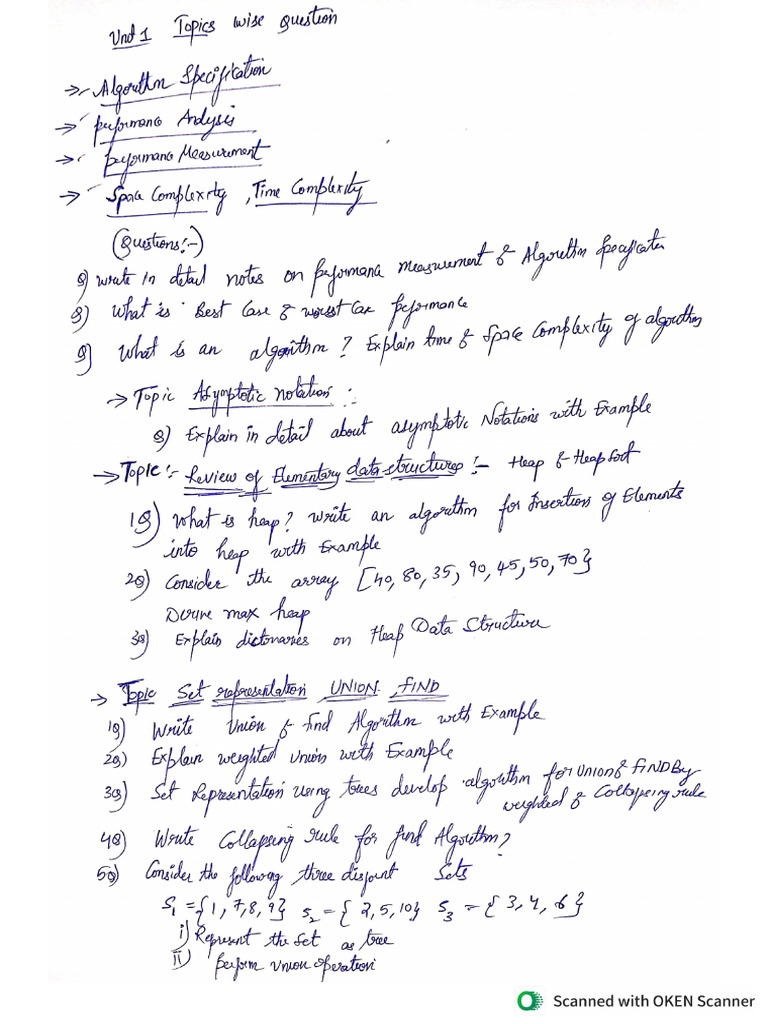 Unit 1 Topics wise Question
→ Algorithm Specification
→ performanc Analysis
→ performanc Measurement
→ Space Complexity , Time Complexity
(Questions:-)
Q) write in detail notes on performanc measurement & Algorithm Specificaten
Q) What is Best Case & worst Cas performance
Q) What is an algorithm? Explain time & Space Complexity of algorithm
→ Topic Asymptotic notation :-
Q) Explain in detail about asymptotic Notations with Example
→ Topic :- Review of Elementary data structures :- Heap & Heap Sort
1Q) What is heap? write an algorithm for Insertion of Elements
into heap with Example
2Q) Consider the array [40, 80, 35, 90, 45, 50, 70}
Derive max heap
3Q) Explain dictonaries on Heap Data Structure
→ Topic Set representation UNION, FIND
1Q) Write Union & find Algorithm with Example
2Q) Explain weighted Union with Example
3Q) Set Representation Using trees develop algorithm for UNION & FIND By
weighted & Collapsing rule
4Q) Write Collapsing rule for find Algorithm?
5Q) Consider the following three disjoint Sets
S1 = {1, 7, 8, 9} S2 = {2, 5, 10} S3 = {3, 4, 6}
i) Represent the Set as tree
ii) perform Union operation
Scanned with OKEN Scanner